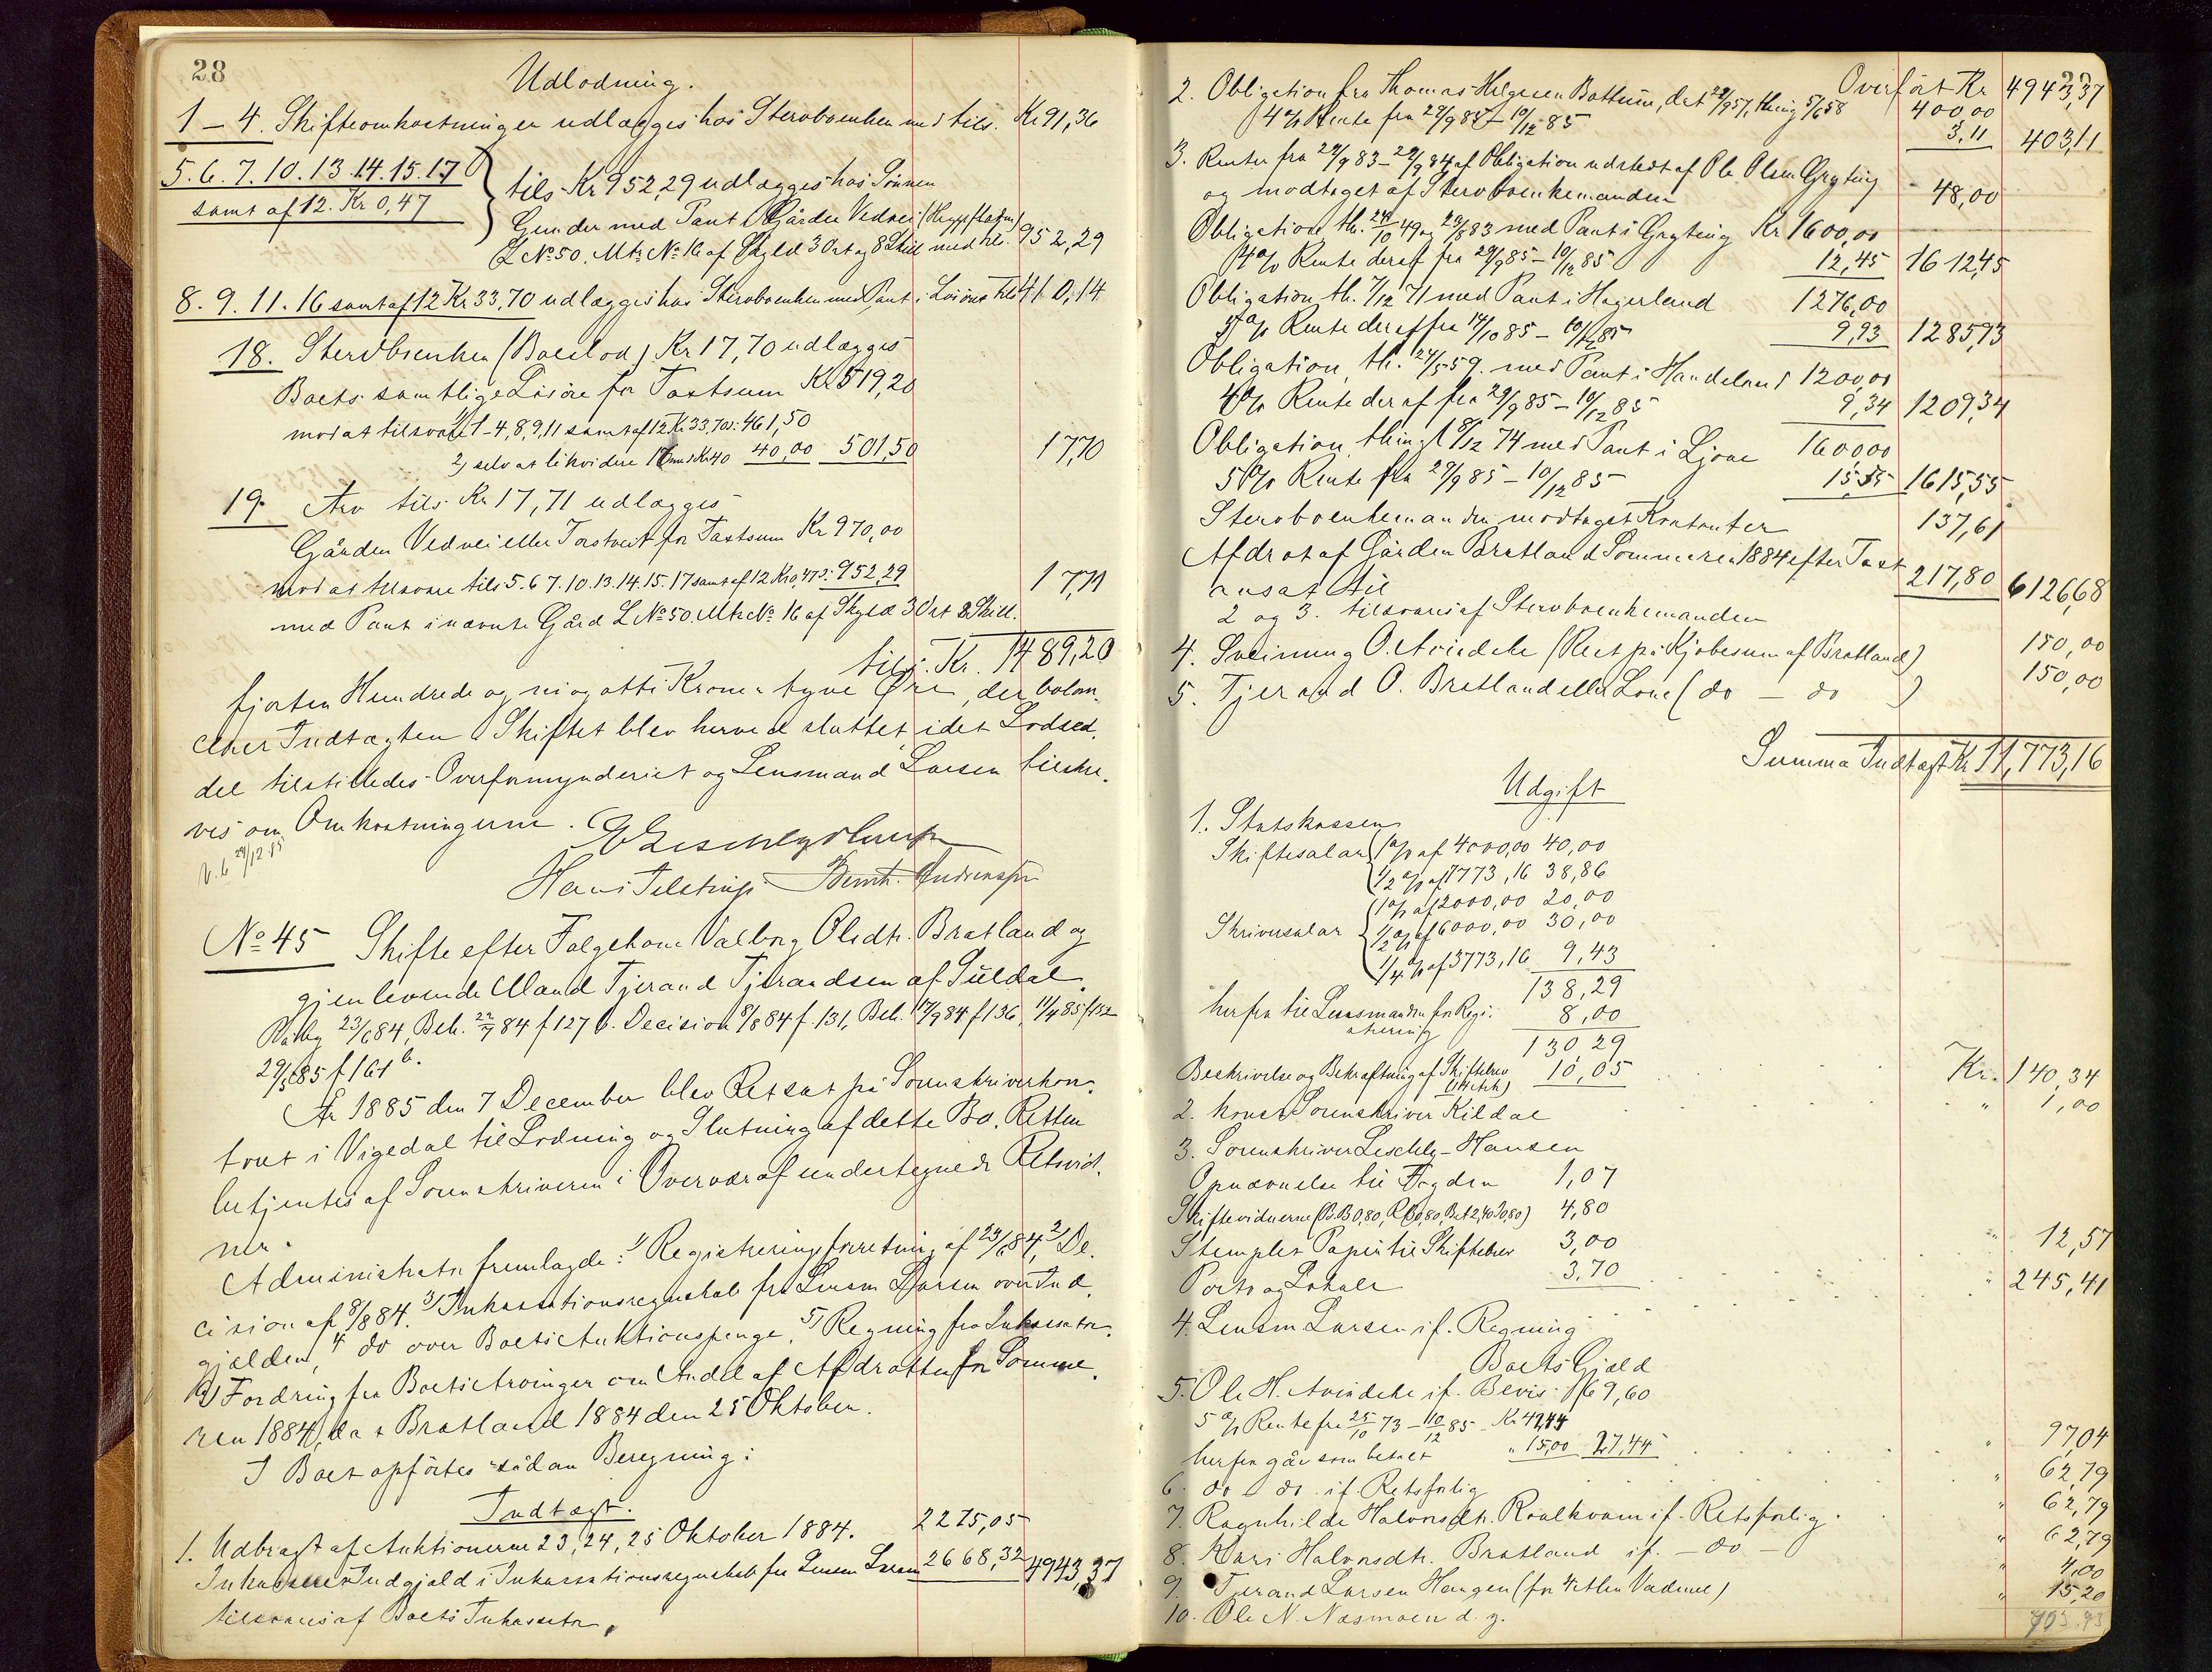 28
Udlodning.
1 – 4. Skifteomkostninger udlægges hos Stervboenken med tils. Kr 91,36
5. 6. 7. 10. 13. 14. 15. 17
samt af 12. Kr 0,47
tils. Kr 952,29 udlægges hos Sønnen
Gunder med Pant i Gården Vedvei
L No 50. Mtr No 16 af Skyld 3 Ort og 8 Skill med tils. 952,29
8. 9. 11. 16 samt af 12 Kr 33,70 udlægges hos Stervboenken med Pant i Løsøre tils 410,14
18. Stervboenken (Boeslod) Kr 17,70 udlægges
Boets samtlige Løsøre for Taxtsum Kr 519,20
mod at tilsvare 1/ 1-4, 8, 9, 11 samt af 12 Kr 33,70: 461,50
2/ selv at likvidere 16 med Kr 40 40,00 501,50 17,70
19. Arv tils. Kr 17,71 udlægges
Gården Vedvei eller Torstveit for Taxtsum Kr 970,00
mod at tilsvare tils 5. 6. 7. 10. 13. 14. 15. 17 samt af 12 Kr 0,47: 952,29 17,71
med Pant i nævnte Gård L No 50. Mtr No 16 af Skyld 3 Ort 8 Skill.
tils. Kr. 1489,20
fjorten Hundrede og ni og otti Kroner tyve Øre, der balan-
cerer Indtægten. Skiftet blev herved sluttet, idet Lodsed-
del tilstilledes Overformynderiet og Lensmand Larsen tilskre-
ves om Omkostningerne.
29/12 85
Hans Tilstrup Bernt. Andreassen
No 45 Skifte efter Folgekone Valborg Olsdtr. Bratland og
gjenlevende Mand Tjerand Tjerandsen af Suldal.
23/6 84, Beh. 22/7 84 f 127 b. Decision 8/8 84 f. 131, Beh. 17/9 84 f 136, 11/4 85 f 152
29/5 85 f 161 b.
År 1885 den 7 December blev Ret sat på Sorenskriverkon-
toret i Vigedal til Lodning og Slutning af dette Bo. Retten
betjentes af Sorenskriveren i Overvær af undertegnede Retsvid-
ner.
Administrator fremlagde: 1/ Registreringsforretning af 23/6 84, 2/ De-
cision af 8/8 84. 3/ Inkassationsregnskab fra Lensm Larsen over Ind-
gjælden, 4 do over Boets Auktionspenge, 5/ Regning fra Inkassator.
6/ Fordring fra Boets Arvinger om Andel af Afdrotten for Somme-
ren 1884, dat Bratland 1884 den 25 Oktober.
I Boet opførtes sådan Beregning:
Indtægt.
1. Udbragt af Auktionerne 23, 24, 25 Oktober 1884. 2275,05
Indgjæld i Inkassationsregnskab fra Lensm Larsen 2668,32 4943,37
tilsvares af Boets Inkassator.
Overført Kr 4943,37
2. Obligation fra Thomas Helgesen Bottum, dat 29/9 57, thing 5/6 58 400,00
4 % Rente fra 29/9 85 – 10/12 85 3,11 403,11
3. Renter fra 29/9 83 – 29/9 84 af Obligation udstedt af Ole Olsen Gryting
og modtaget af Stervboenkemanden 48,00
Obligation th. 24/10 49 og 29/8 83 med Pant i Gryting Kr 1600,00
4 % Rente deraf fra 29/9 85 – 10/12 85 12,45 1612,45
Obligation th. 7/12 71 med Pant i Hagerland 1276,00
5 % Rente deraf fra 14/10 85 – 10/12 85 9,93 1285,93
Obligation, th. 24/5 59. med Pant i Handeland 1200,00
4 % Rente deraf fra 29/9 85 – 10/12 85 9,34 1209,34
Obligation, thingl 8/12 74 med Pant i Ljone 1600,00
5 % Rente fra 29/9 85 – 10/12 85 15,55 1615,55
Stervboenkemanden modtaget Kontanter 137,61
Afdrot af Gården Bratland Sommeren 1884 efter Taxt
ansat til 217,80 6126,68
2 og 3. tilsvares af Stervboenkemanden
4. Sveinung O. Avindele (Rest på Kjøbesum af Bratland) 150,00
5. Tjerand O. Bratland eller Lone (do – do) 150,00
Summa Indtægt Kr 11,773,16
Udgift
1. Statskassen
Skiftesalar 1 % af 4000,00 40,00
1/2 % af 7773,16 38,86
Skriversalar 1 % af 2000,00 20,00
1/2 % af 6000,00 30,00
1/4 % af 3773,16 9,43
138,29
herfra til Lensmanden for Regi-
strering 8,00
130,29
Beskrivelse og Bekræftning af Skiftebrev 10,05 Kr. 140,34
2. konst Sorenskriver Kildal " 1,00
3. Sorenskriver Leschly-Hansen
Opnævnelse til Fogden 1,07
Skiftevidnerne 4,80
Stemplet Papir til Skiftebrev 3,00
Porto og Lokale 3,70 " 12,57
4. Lensm Larsen if. Regning " 245,41
Boets Gjæld
5. Ole H. Avindele if. Bevis 69,60
5 % Rente fra 25/10 73 – 10/12 85 Kr 42,44
herfra går som betalt " 15,00 27,44 " 97,04
6. do – do if. Retsforlig " 62,79
7. Ragnhilde Halvorsdtr. Roalkvam if. Retsforlig " 62,79
8. Kari Halvorsdtr. Bratland if. – do – " 62,79
9. Tjerand Larsen Haugen " 4,00
10. Ole N. Næsmoen d. y. " 15,20